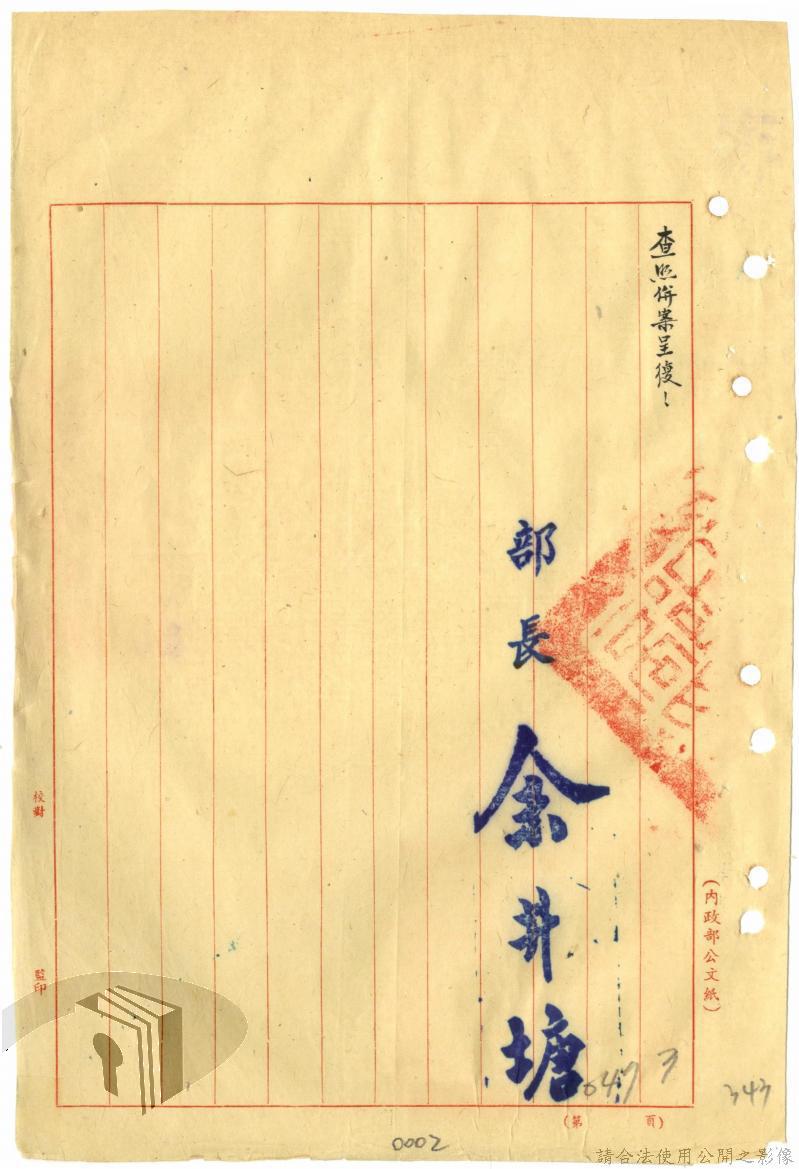 查照併案呈復
部長余井塘
(內政部公文紙)
校對
監印
(第 頁)
0473
343
0002
請合法使用公開之影像